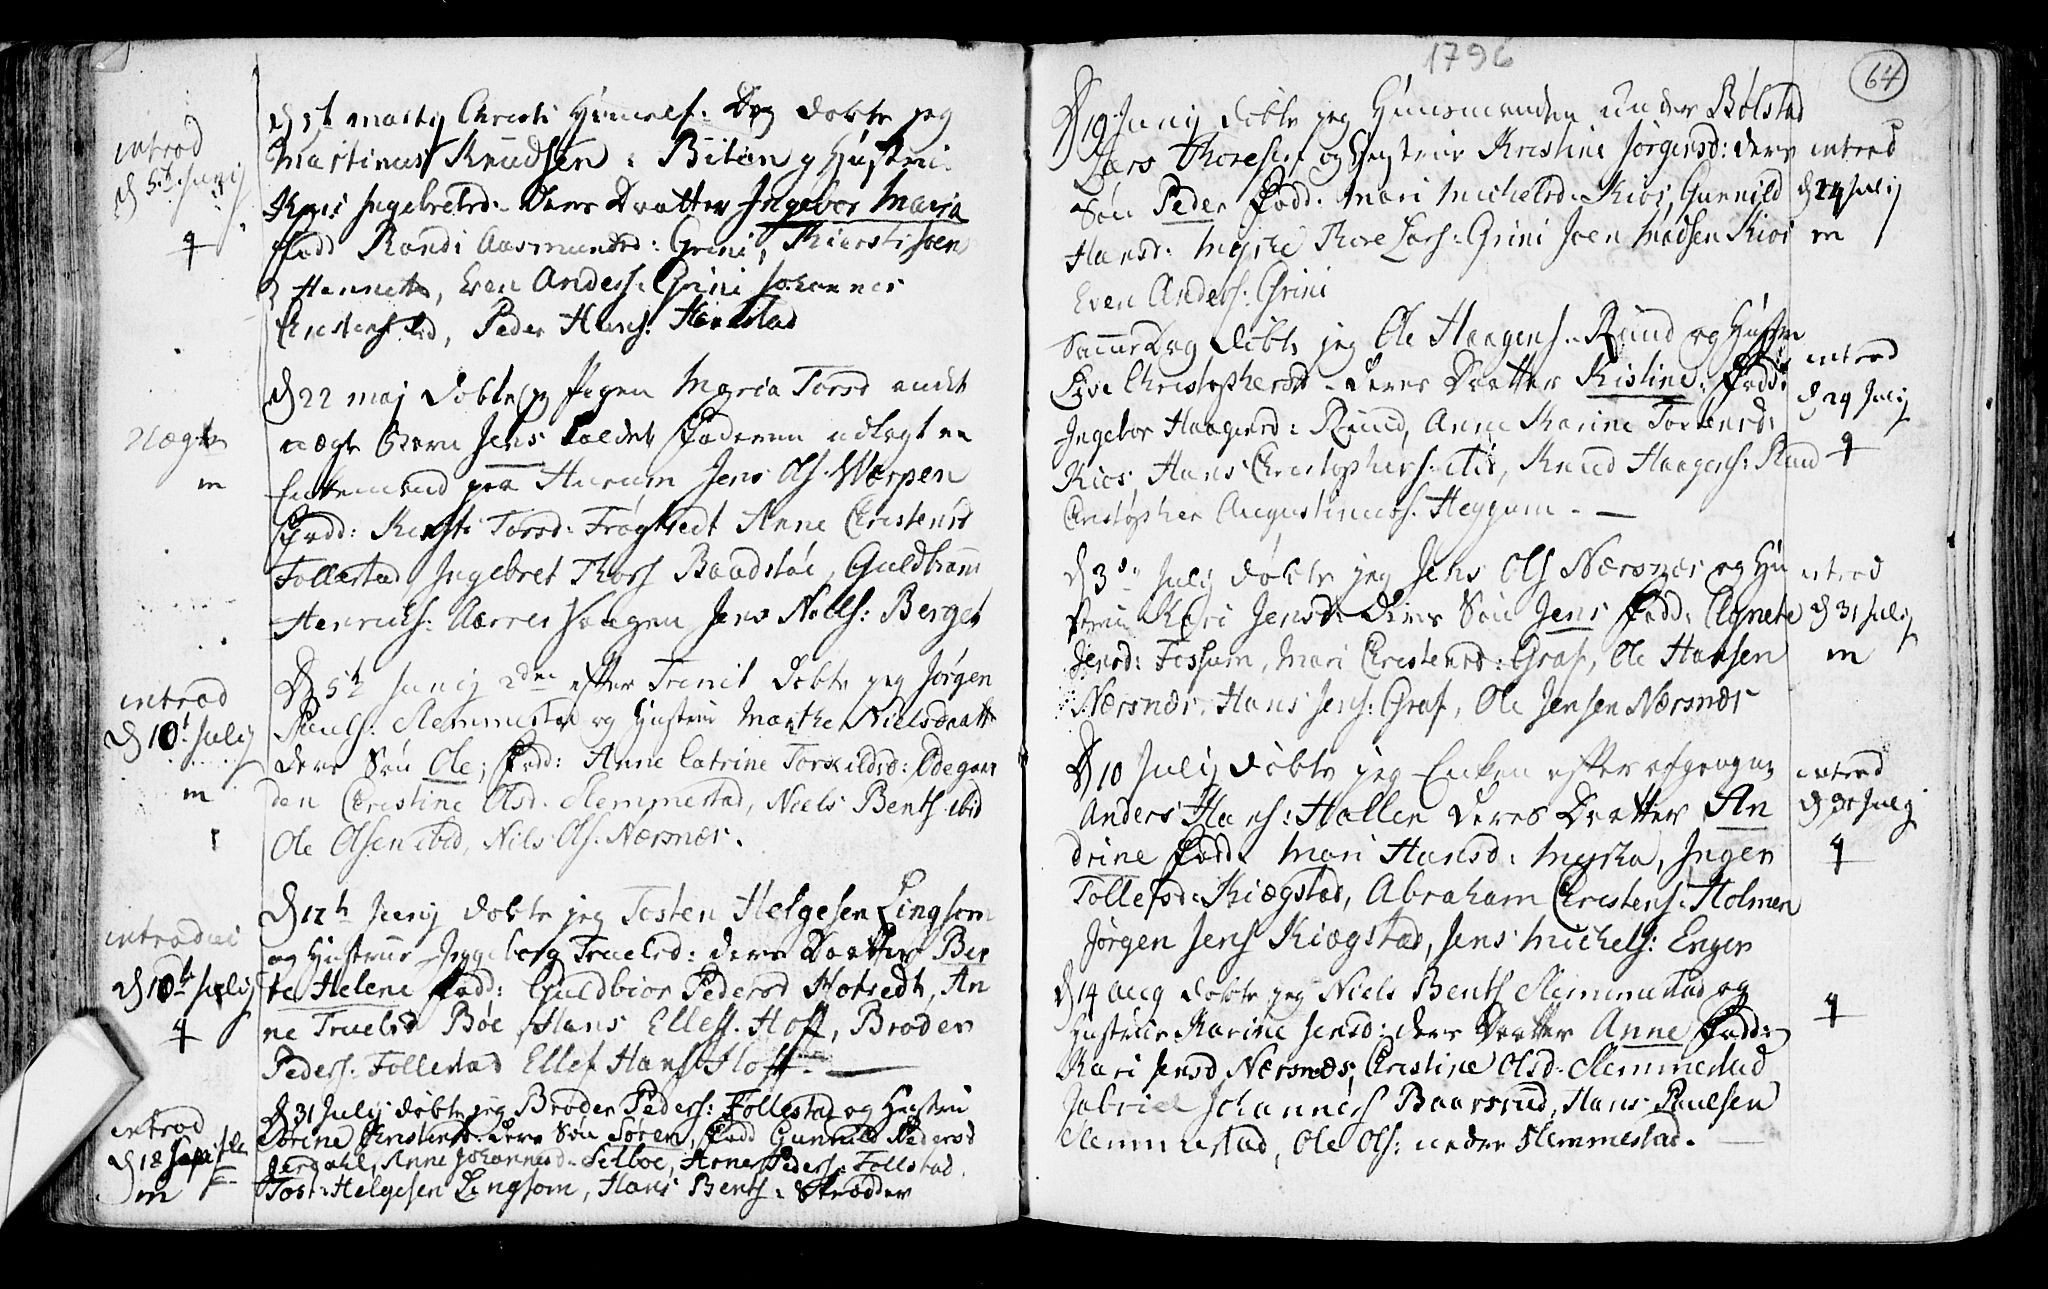 introd
d 5te Junij
q
d 5t maity Christi Himelf: Dag døbte jeg
Martinus Knudsen : Bilan og Hustrue
Kari Ingebretsd. deres Daatter Ingebor Maria
Fadd Randi Aasmundsd: Grini, Kiersti Joens
Hennette, Even Anders: Grini Johannes
Christens: Peder Hans: Harestad
Nægte
m
d 22 maj døbte jeg Pigen Maria Torsd andet
uægte Barn Jens kaldet, Faderen udlagt en
Enkemand paa Hurum Jens Ols. Wærpen
Fadd: Kersti Torsd: Frøgtvedt Anne Christensd
Follestad Ingebret Thors Baadstøe, Guldbrand
Henrichs: Haagen Jens Niels: Berget
introd
d 10t Julij
m
D 5te Junij 2den efter Trinit døbte jeg Jørgen
Pauls: Slemmestad og Hustrue Marthe Nielsdaatt
deres Søn Ole; Fadd: Anne Catrine Torkildsd: Ødegaar
den Christine Olsd. Slemmestad, Niels Bents ibid
Ole Olsen ibid, Niels Ols. Nærsnæs.
introduc
d 10te Julij
q
d 12te Junij døbte jeg Tosten Helgesen Lingsom
og Hustrue Ingeborg Truelsd: deres Daatter Ber
te Helene Fadd: Guldbior Pedersd Hotvedt, An
ne Truelsd Bøe, Hans Ellefs. Hoff, Broder
Peders. Follestad Ellef Hans Hoff
introd
d 18 Septbr
m
d 31 Julij døbte jeg Broder Peders: Follestad og Hustru
Dorine Christensd. deres Søn Søren, Fadd Gunnild Pedersd
Jerdahl, Anne Johannesd. Selboe, Arne Peders. Follestad
Tost: Helgesen Lingsom, Hans Bents: Skrædder
1796
64
D 19 Junij døbte jeg Huusmanden under Bølstad
Lars Thoresen og Hustrue Kristine Jørgensd: deres
Søn Peder Fadd. Mari Michelsd. Kios, Gunnild
Hansd. Myrhe Thore Lars: Grini Joen Madsen Kios
Even Anders: Grini
introd
d 24 Julij
m
Samme Dag døbte jeg Ole Haagens. Ruud og Hustru
Live Christophersd. deres Daatter Kistine: Fadd:
Ingebor Haagensd: Ruud, Anne Karine Torstensd:
Kios Hans Christophers. ibid, Knud Haagens: Ruud
Christopher Augustinus. Heggum.
introd
d 24 Julij
q
d 3die Julij døbte jeg Jens Ols Nærsnæs og Hu
strue Kari Jensd. deres Søn Jens Fadd: Agnete
Jensd: Fossum, Mari Christensd: Graf, Ole Hansen
Nærsnæs, Hans Jens: Graf, Ole Jensen Nærsnæs
introd
d 31 Julij
m
D 10 Julij døbte jeg Enken efter afgangne
Anders Hans: Hallen deres Daatter An
drine Fadd. Mari Hansd: Myrha, Inger
Tollefsd. Kiægstad, Abraham Christens. Holmen
Jørgen Jens Kiægstad, Jens Michels: Enger
introd
d 31 Julij
q
d 14 aug døbte jeg Niels Bents Slemmestad og
Hustrue Karine Jensd: deres Daatter Anne Fadd:
Kari Jensd Nærsnæs, Christine Olsd. Slemmestad
Gabriel Johannes Baarsrud, Hans Paulsen
Slemmestad, Ole Ols: under Slemmestad.
q